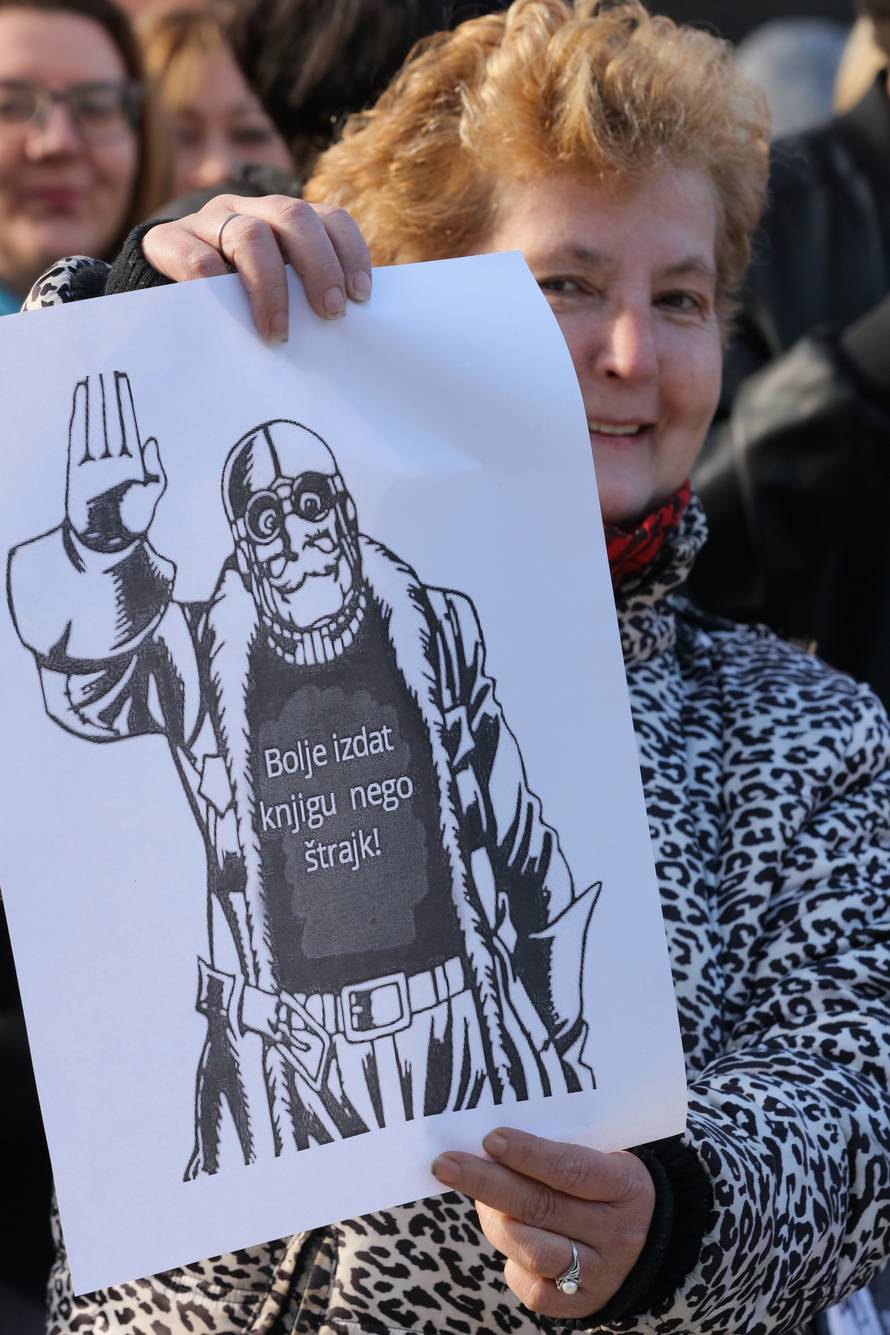 Bolje izdat
knjigu nego
štrajk!